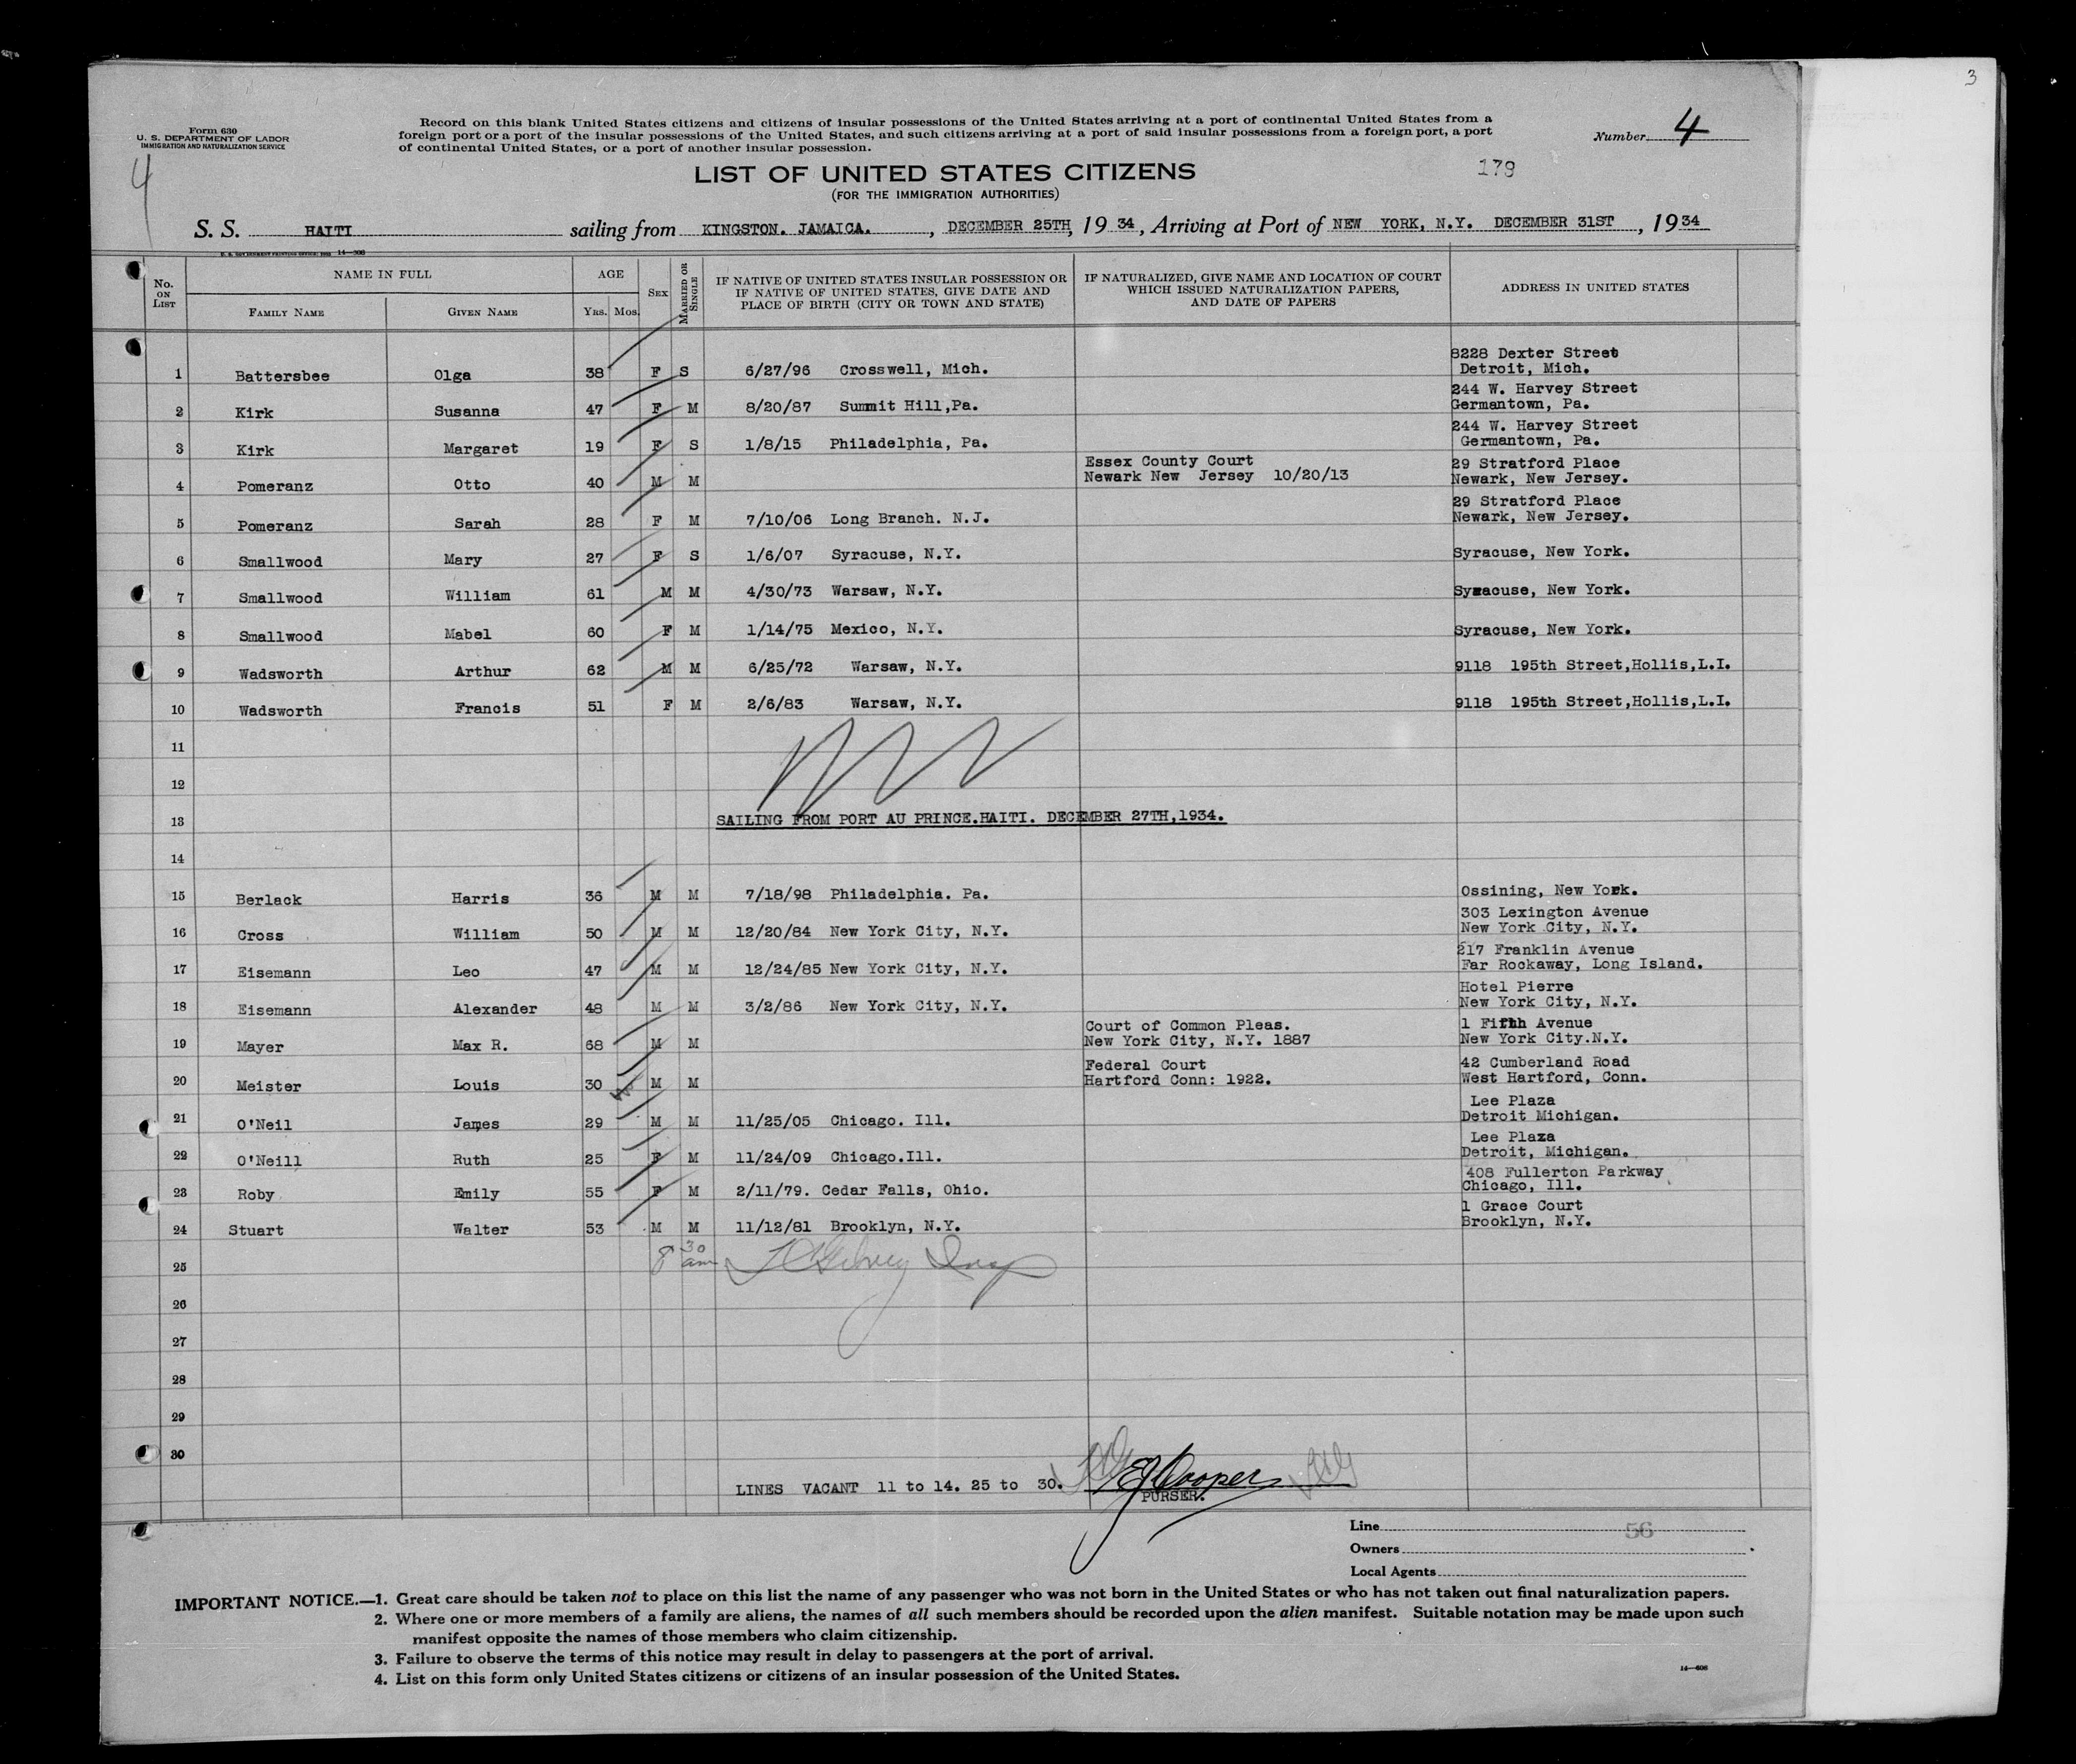 3
Form 630
U. S. DEPARTMENT OF LABOR
IMMIGRATION AND NATURALIZATION SERVICE
4
Record on this blank United States citizens and citizens of insular possessions of the United States arriving at a port of continental United States from a
foreign port or a port of the insular possessions of the United States, and such citizens arriving at a port of said insular possessions from a foreign port, a port
of continental United States, or a port of another insular possession.
Number 4
LIST OF UNITED STATES CITIZENS
(FOR THE IMMIGRATION AUTHORITIES)
179
S. S. HAITI sailing from KINGSTON. JAMAICA. , DECEMBER 25TH, 19 34, Arriving at Port of NEW YORK, N.Y. DECEMBER 31ST , 19 34
No. ON LIST
NAME IN FULL
FAMILY NAME GIVEN NAME
AGE
YRS. MOS.
SEX
MARRIED OR SINGLE
IF NATIVE OF UNITED STATES INSULAR POSSESSION OR
IF NATIVE OF UNITED STATES, GIVE DATE AND
PLACE OF BIRTH (CITY OR TOWN AND STATE)
IF NATURALIZED, GIVE NAME AND LOCATION OF COURT
WHICH ISSUED NATURALIZATION PAPERS,
AND DATE OF PAPERS
ADDRESS IN UNITED STATES
8228 Dexter Street
1 Battersbee Olga 38 F S 6/27/96 Crosswell, Mich. Detroit, Mich.
244 W. Harvey Street
2 Kirk Susanna 47 F M 8/20/87 Summit Hill,Pa. Germantown, Pa.
244 W. Harvey Street
3 Kirk Margaret 19 F S 1/8/15 Philadelphia, Pa. Germantown, Pa.
Essex County Court 29 Stratford Place
4 Pomeranz Otto 40 M M Newark New Jersey 10/20/13 Newark, New Jersey.
29 Stratford Place
5 Pomeranz Sarah 28 F M 7/10/06 Long Branch. N.J. Newark, New Jersey.
6 Smallwood Mary 27 F S 1/6/07 Syracuse, N.Y. Syracuse, New York.
7 Smallwood William 61 M M 4/30/73 Warsaw, N.Y. Syracuse, New York.
8 Smallwood Mabel 60 F M 1/14/75 Mexico, N.Y. Syracuse, New York.
9 Wadsworth Arthur 62 M M 6/25/72 Warsaw, N.Y. 9118 195th Street,Hollis,L.I.
10 Wadsworth Francis 51 F M 2/6/83 Warsaw, N.Y. 9118 195th Street,Hollis,L.I.
11
12
13 SAILING FROM PORT AU PRINCE.HAITI. DECEMBER 27TH,1934.
14
15 Berlack Harris 36 M M 7/18/98 Philadelphia. Pa. Ossining, New York.
303 Lexington Avenue
16 Cross William 50 M M 12/20/84 New York City, N.Y. New York City, N.Y.
217 Franklin Avenue
17 Eisemann Leo 47 M M 12/24/85 New York City, N.Y. Far Rockaway, Long Island.
Hotel Pierre
18 Eisemann Alexander 48 M M 3/2/86 New York City, N.Y. New York City, N.Y.
Court of Common Pleas. 1 Fifth Avenue
19 Mayer Max R. 68 M M New York City, N.Y. 1887 New York City.N.Y.
Federal Court 42 Cumberland Road
20 Meister Louis 30 M M Hartford Conn: 1922. West Hartford, Conn.
Lee Plaza
21 O'Neil James 29 M M 11/25/05 Chicago. Ill. Detroit Michigan.
Lee Plaza
22 O'Neill Ruth 25 F M 11/24/09 Chicago.Ill. Detroit, Michigan.
408 Fullerton Parkway
23 Roby Emily 55 F M 2/11/79. Cedar Falls, Ohio. Chicago, Ill.
1 Grace Court
24 Stuart Walter 53 M M 11/12/81 Brooklyn, N.Y. Brooklyn, N.Y.
8 30 am
25
26
27
28
29
30
LINES VACANT 11 to 14. 25 to 30. EJ Cooper
PURSER.
Line 56
Owners
Local Agents
IMPORTANT NOTICE.—1. Great care should be taken not to place on this list the name of any passenger who was not born in the United States or who has not taken out final naturalization papers.
2. Where one or more members of a family are aliens, the names of all such members should be recorded upon the alien manifest. Suitable notation may be made upon such
manifest opposite the names of those members who claim citizenship.
3. Failure to observe the terms of this notice may result in delay to passengers at the port of arrival.
4. List on this form only United States citizens or citizens of an insular possession of the United States.
14—606